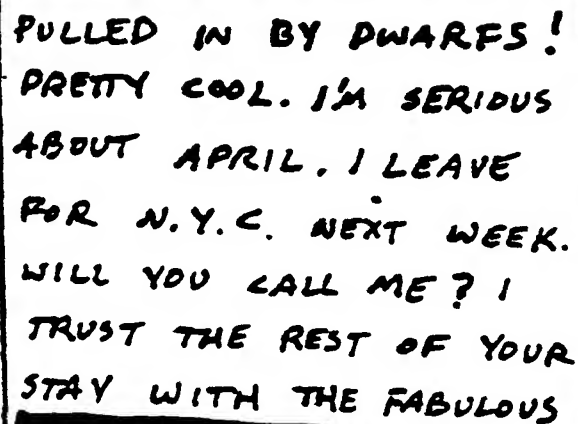 PULLED IN BY DWARFS!
PRETTY COOL. I'M SERIOUS
ABOUT APRIL. I LEAVE
FOR N.Y.C. NEXT WEEK.
WILL YOU CALL ME? I
TRUST THE REST OF YOUR
STAY WITH THE FABULOUS